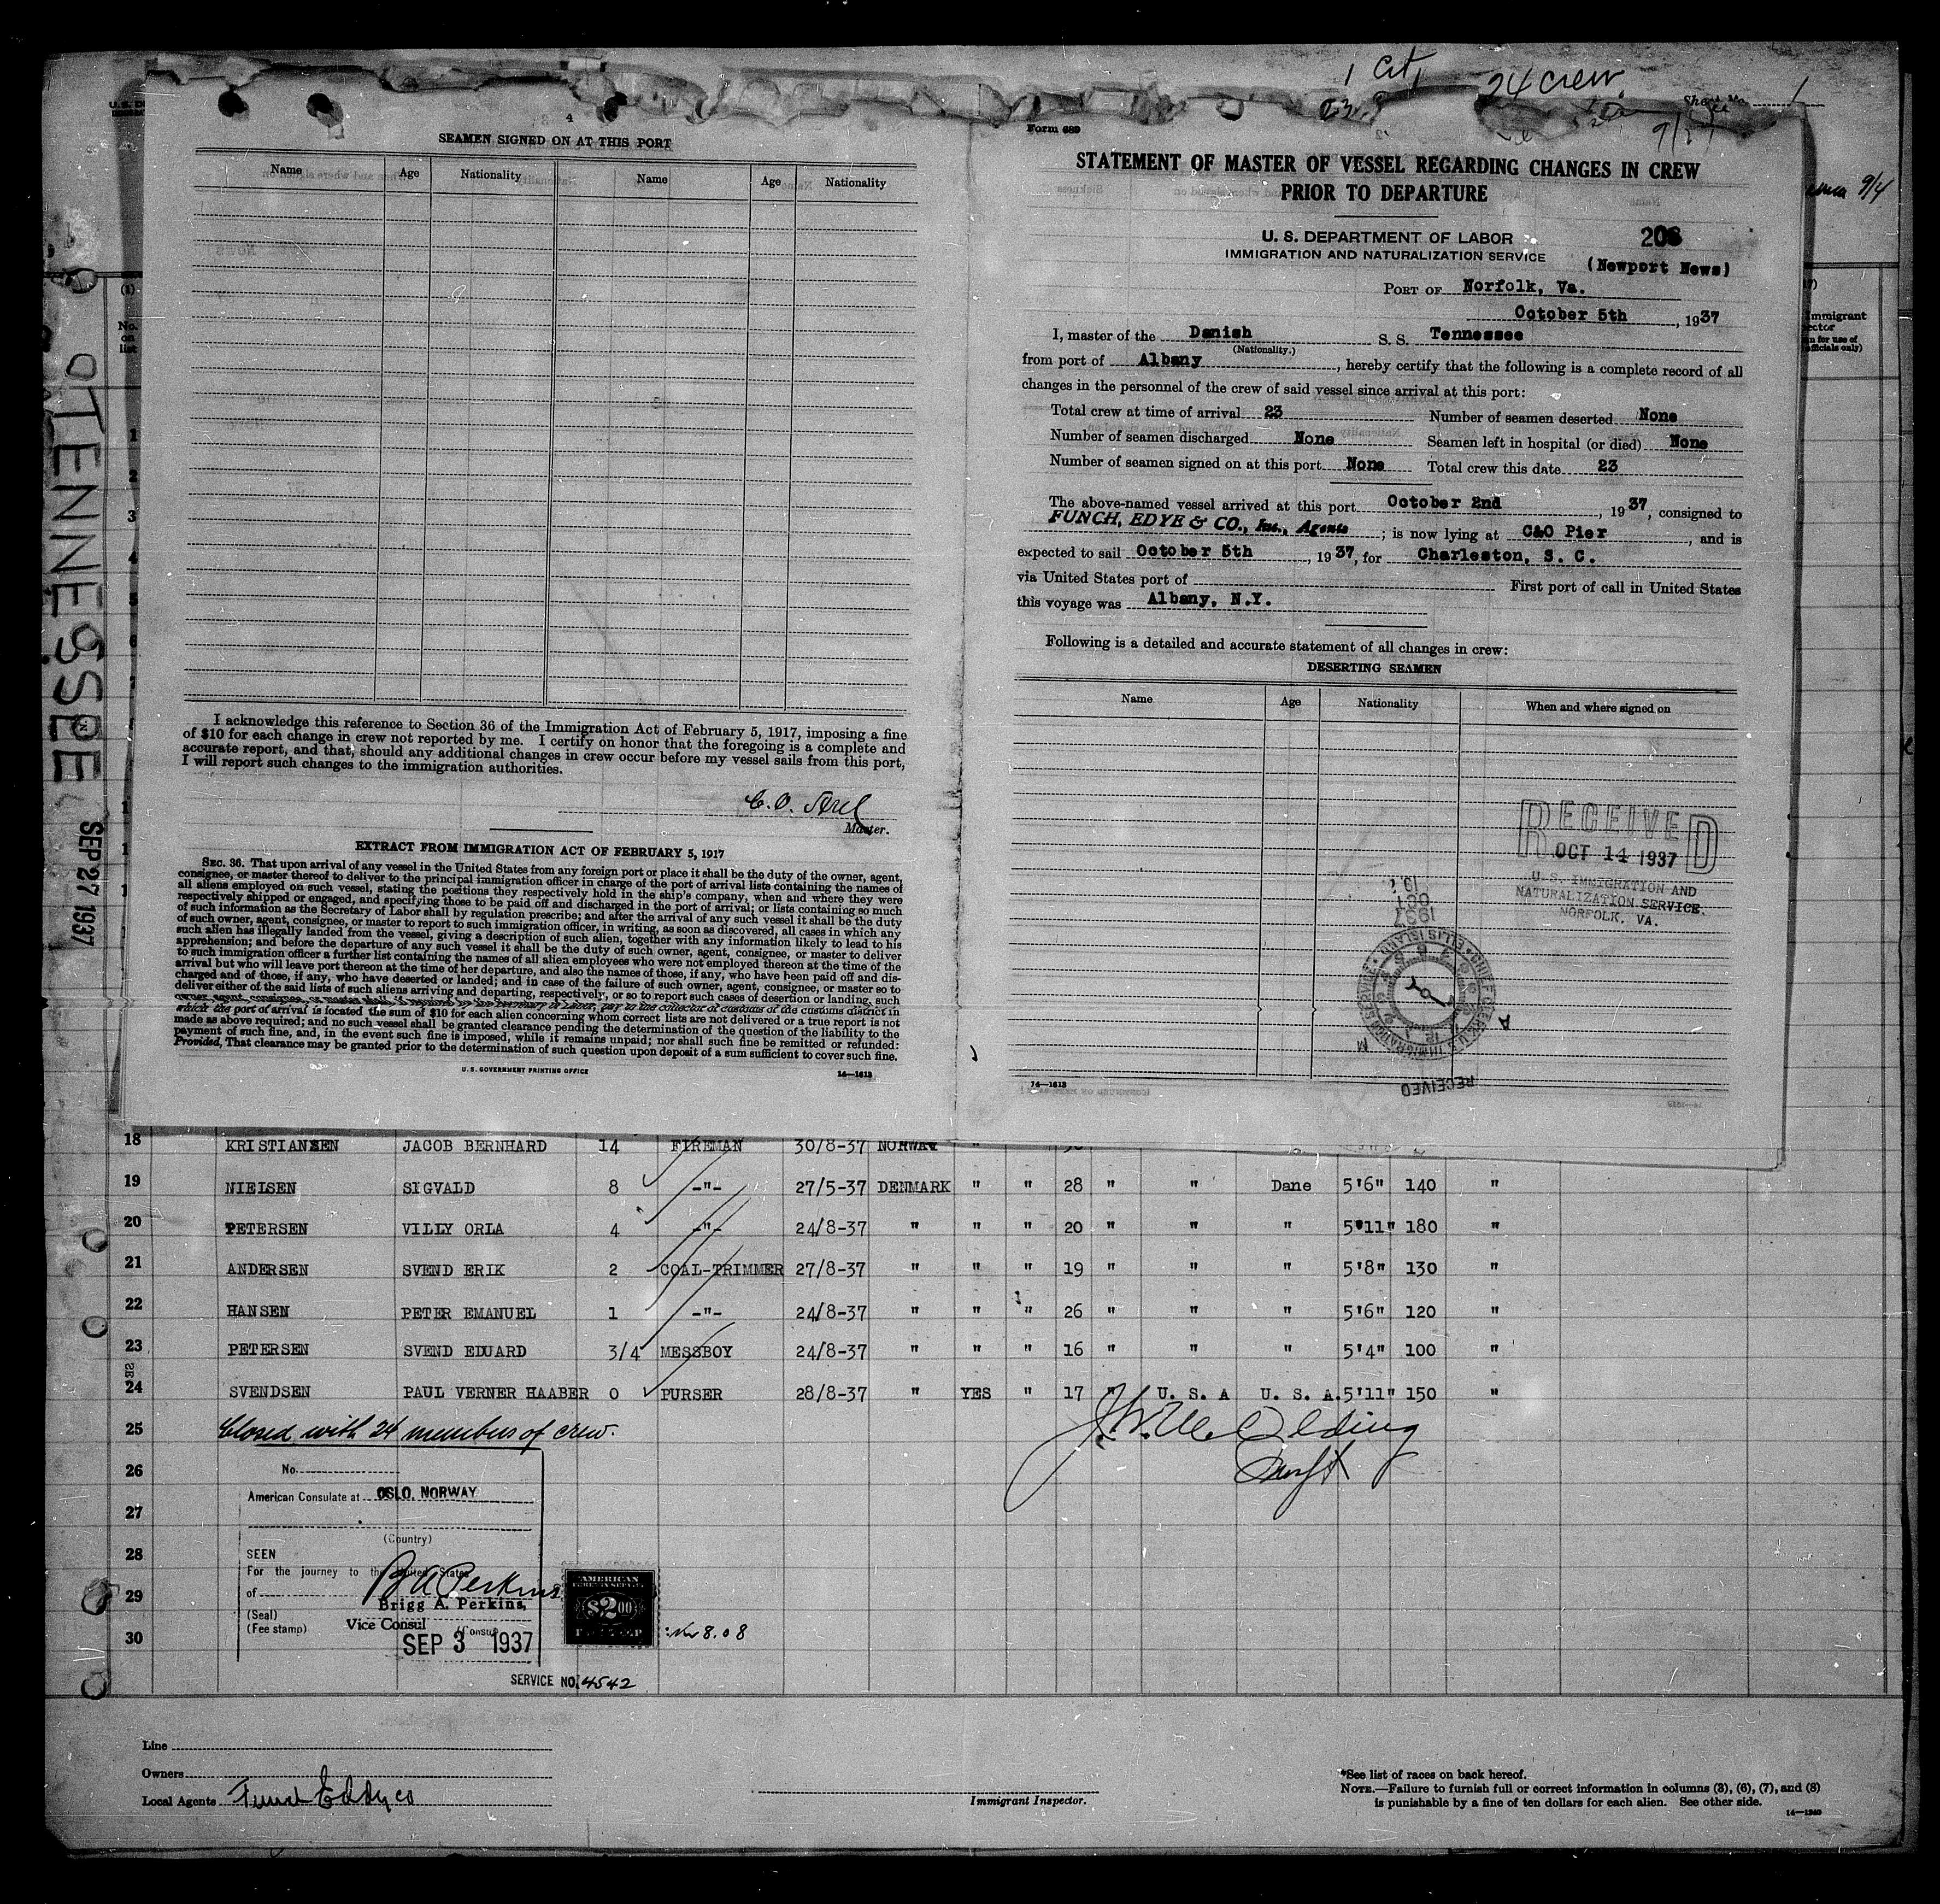 1 Cit,
24 crew.
Sheet No. 1
4
SEAMEN SIGNED ON AT THIS PORT
Name Age Nationality Name Age Nationality
I acknowledge this reference to Section 36 of the Immigration Act of February 5, 1917, imposing a fine
of $10 for each change in crew not reported by me. I certify on honor that the foregoing is a complete and
accurate report, and that, should any additional changes in crew occur before my vessel sails from this port,
I will report such changes to the immigration authorities.
Master.
EXTRACT FROM IMMIGRATION ACT OF FEBRUARY 5, 1917
SEC. 36. That upon arrival of any vessel in the United States from any foreign port or place it shall be the duty of the owner, agent,
consignee, or master thereof to deliver to the principal immigration officer in charge of the port of arrival lists containing the names of
all aliens employed on such vessel, stating the positions they respectively hold in the ship's company, when and where they were
respectively shipped or engaged, and specifying those to be paid off and discharged in the port of arrival; or lists containing so much
of such information as the Secretary of Labor shall by regulation prescribe; and after the arrival of any such vessel it shall be the duty
of such owner, agent, consignee, or master to report to such immigration officer, in writing, as soon as discovered, all cases in which any
such alien has illegally landed from the vessel, giving a description of such alien, together with any information likely to lead to his
apprehension; and before the departure of any such vessel it shall be the duty of such owner, agent, consignee, or master to deliver
to such immigration officer a further list containing the names of all alien employees who were not employed thereon at the time of the
arrival but who will leave port thereon at the time of her departure, and also the names of those, if any, who have been paid off and dis-
charged and of those, if any, who have deserted or landed; and in case of the failure of such owner, agent, consignee, or master so to
deliver either of the said lists of such aliens arriving and departing, respectively, or so to report such cases of desertion or landing, such
owner, agent, consignee, or master shall, if required by the Secretary of Labor, pay to the collector of customs of the customs district in
which the port of arrival is located the sum of $10 for each alien concerning whom correct lists are not delivered or a true report is not
made as above required; and no such vessel shall be granted clearance pending the determination of the question of the liability to the
payment of such fine, and, in the event such fine is imposed, while it remains unpaid; nor shall such fine be remitted or refunded:
Provided, That clearance may be granted prior to the determination of such question upon deposit of a sum sufficient to cover such fine.
U. S. GOVERNMENT PRINTING OFFICE 14—1613
Form 689
STATEMENT OF MASTER OF VESSEL REGARDING CHANGES IN CREW
PRIOR TO DEPARTURE
U. S. DEPARTMENT OF LABOR
IMMIGRATION AND NATURALIZATION SERVICE
(Newport News)
PORT OF Norfolk, Va.
October 5th, 1937
I, master of the Danish S. S. Tennessee
(Nationality.)
from port of Albany, hereby certify that the following is a complete record of all
changes in the personnel of the crew of said vessel since arrival at this port:
Total crew at time of arrival 23 Number of seamen deserted None
Number of seamen discharged None Seamen left in hospital (or died) None
Number of seamen signed on at this port None Total crew this date 23
The above-named vessel arrived at this port October 2nd, 1937, consigned to
FUNCH, EDYE & CO., Inc., Agents; is now lying at C&O Pier, and is
expected to sail October 5th, 1937, for Charleston, S. C.
via United States port of First port of call in United States
this voyage was Albany, N.Y.
Following is a detailed and accurate statement of all changes in crew:
DESERTING SEAMEN
Name Age Nationality When and where signed on
RECEIVED
OCT 14 1937
U. S. IMMIGRATION AND
NATURALIZATION SERVICE.
NORFOLK, VA.
OCT
1937
CHIEF CLERK U.S. IMMIGRATION SERVICE ELLIS ISLAND
RECEIVED
14—1613
TENNESSEE
SEP 27 1937
(1)
No. on list
18 KRISTIANSEN JACOB BERNHARD 14 FIREMAN 30/8-37 NORWAY "
19 NIELSEN SIGVALD 8 -"- 27/5-37 DENMARK " " 28 " " Dane 5'6" 140 "
20 PETERSEN VILLY ORLA 4 -"- 24/8-37 " " " 20 " " " 5'11" 180 "
21 ANDERSEN SVEND ERIK 2 COAL-TRIMMER 27/8-37 " " " 19 " " " 5'8" 130 "
22 HANSEN PETER EMANUEL 1 -"- 24/8-37 " " " 26 " " " 5'6" 120 "
23 PETERSEN SVEND EDUARD 3/4 MESSBOY 24/8-37 " " " 16 " " " 5'4" 100 "
24 SVENDSEN PAUL VERNER HAABER 0 PURSER 28/8-37 " YES " 17 " U. S. A U. S. A. 5'11" 150 "
25 Closed with 24 members of crew.
26
No.
American Consulate at OSLO, NORWAY
27
(Country)
28 SEEN
For the journey to the United States
29 of
Brigg A. Perkins,
(Seal)
(Fee stamp) Vice Consul
30 SEP 3 1937
AMERICAN
FOREIGN SERVICE
$2.00
SERVICE NO. 4542
Line
Owners
Local Agents
Immigrant Inspector.
*See list of races on back hereof.
NOTE.—Failure to furnish full or correct information in columns (3), (6), (7), and (8)
is punishable by a fine of ten dollars for each alien. See other side.
14—1240